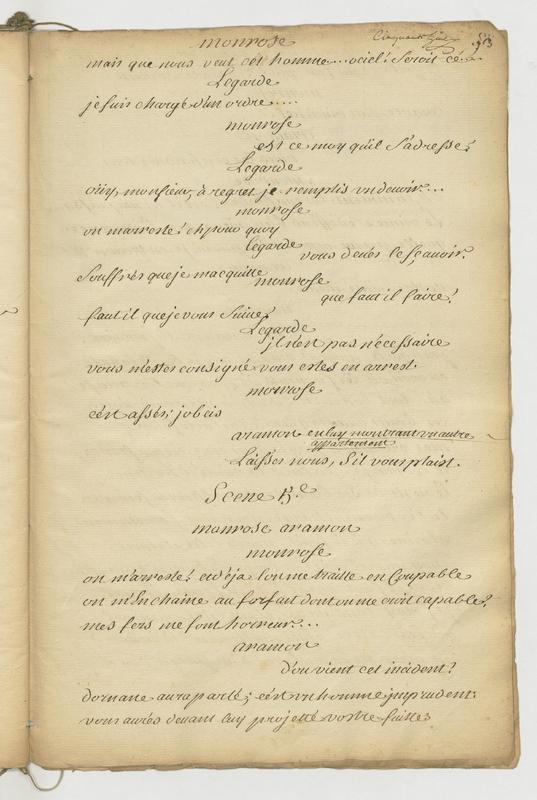 monrose
mais que nous veut cét homme... ociel! seroit cé..
Legarde
je suis chargé d'un ordre.....
monrose
est ce moy qu'il s'adresse?
Legarde
oüy, monsieur, à regret je remplis un devoir....
monrose
on m'arreste! eh pour quoy
legarde
vous devés le sçavoir.
souffrés que je m'acquitte
monrose
que faut il faire?
faut il que je vous suive?
Legarde
jl n'en pas nécessaire
vous m'estes consigné vous estes en arrest.
monrose
c'én assés; j'obeis
aramon en luy montrant un autre
appartement
Laissés nous, s'il vous plaist.
Scene 13.e
monrose aramon
monrose
on m'arreste! et d'éja l'on me traitte en Coupable
on m'énchaine au forfait dont on me croit capable?
mes fers me font horreur....
aramon
d'ou vient cet incident?
dornane aura parlé; c'én un homme jmprudent.
vous aurés devant luy projetté vostre fuitte;